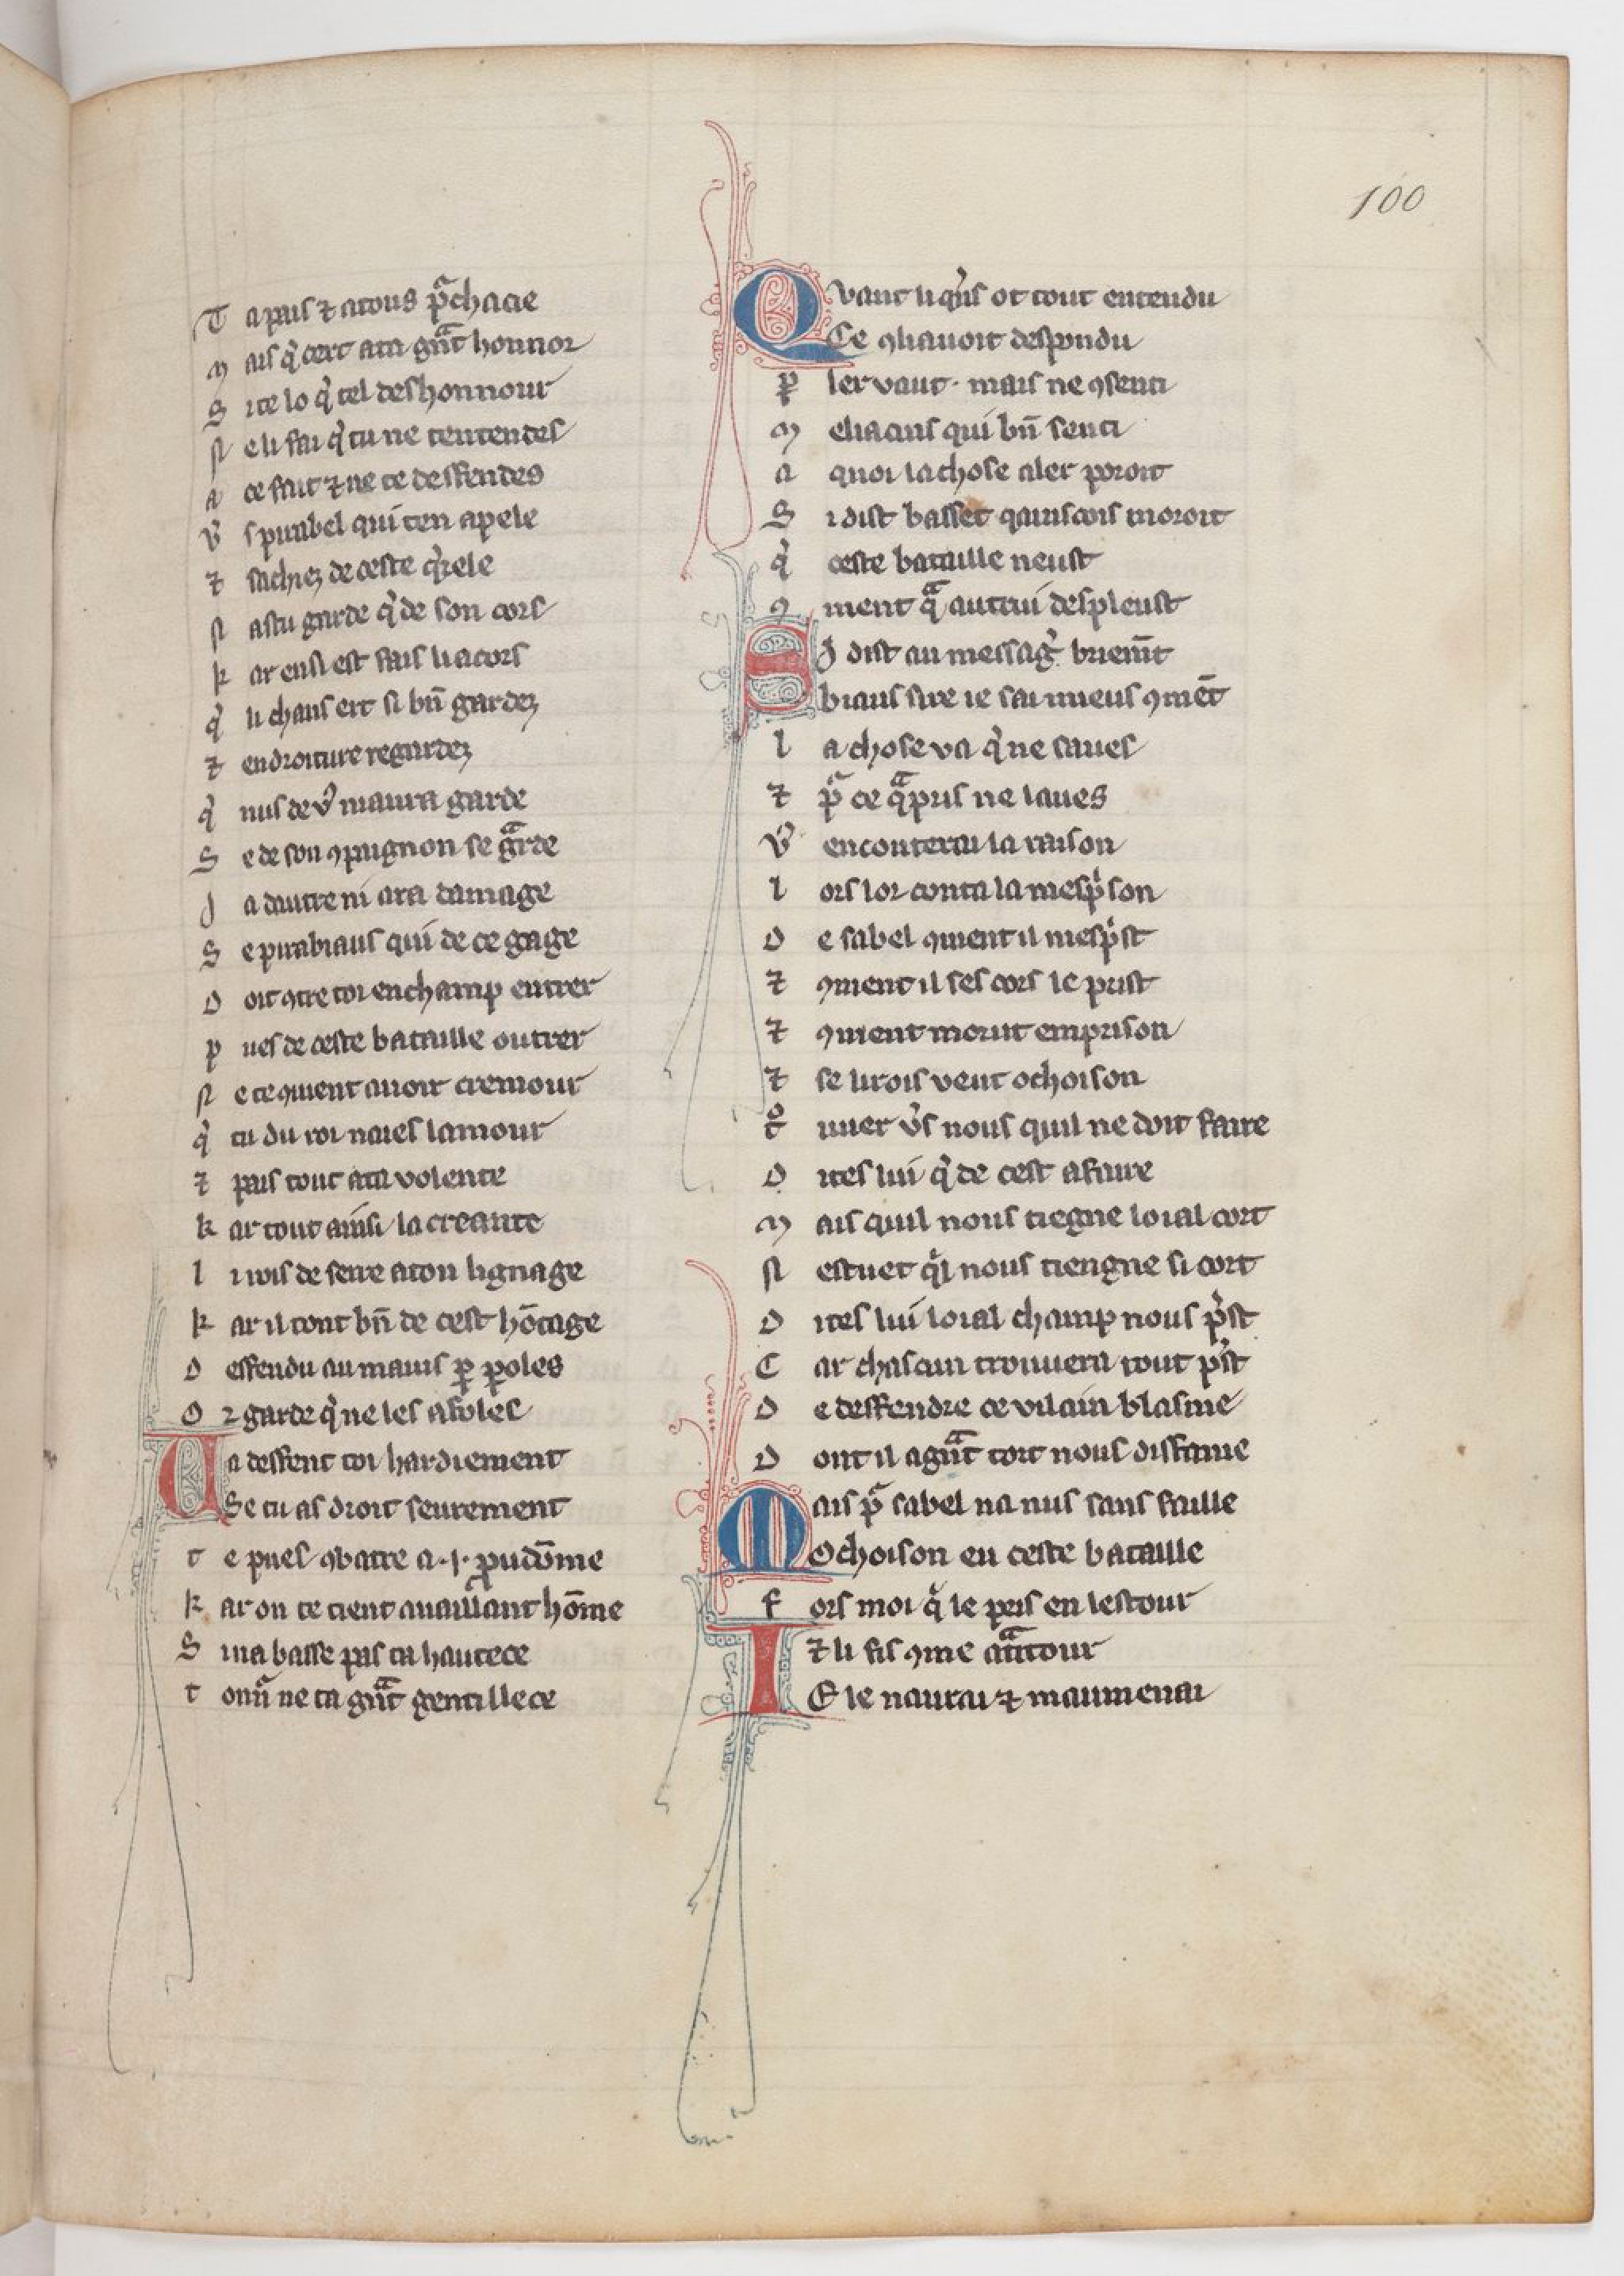 100
T a pais ⁊ a tous pͣchacie
M ais qͥ cert a ta gnͣt honnor
S ite lo qͥ tel deshonnour
N e li fai qͥ tu ne tentendes
A ce fait ⁊ ne te deffendes
V s pirabel qui ten apele
⁊ sachiez de ceste qͥrele
N as tu garde qͥ de son cors
K ar ensi est fais li acors
qͥ li chans ert si bn̄ gardez
⁊ en droiture regardez
qͥ nus de vͦ maura garde
S e de son ꝯpaignon se gͣrde
J a dautre ni ara damage
S e pirabiaus qui de ce gage
D oit ꝯtre toi en champ entrer
P ues de ceste bataille outrer
N e te ꝯuient auoir cremour
qͥ tu du roi naies lamour
⁊ pais tout a ta volente
K ar tout ainsi la creante
L i rois de serre a ton lignage
K ar il tout bn̄ de cest hōtage
D effendu au mains ꝑ ꝑoles
O r garde qͥ ne les asoles
Ua deffent toi hardiement
Se tu as droit seurement
T e pues ꝯbatre a .i. pudōme
K ar on te tient a uaillant hōme
S i na basse pas ta hautece
T onu ne ta gnͣt gentillece
Quant li qͥns ot tout entendu
Ce ꝯli auoit despondu
ꝑ ler vaut · mais ne ꝯsenti
M eliacins qui bn̄ senti
A quoi la chose aler poroit
S i dist basset qains cois moroit
qͥ ceste bataille neust
ꝯ ment qͣ autrui despleust
SJ dist au messagͥ briem̄t
biaus sire ie sai mieus ꝯmēt
L a chose va qͥ ne saues
⁊ pͣ ce qͣpris ne laues
Vͦ en conterai la raison
L ors lor conta la mespͥson
D e sabel ꝯment il mespͥst
⁊ ꝯment il ses cors le prist
⁊ ꝯment morut em prison
⁊ se li rois veut ochoison
tͦ uuer vͥs nous quil ne doit faire
D ites lui qͥ de cest afaire
M ais quil nous tiegne loial cort
N estuet qͥl nous tiengne si cort
D ites lui loial champ nous pͥst
C ar chascun trouuera tout pͥst
D e deffendre ce vilain blasme
D ont il a gnͣt tort nous diffame
Mais pͣ sabel na nus sans faille
Ochoison en ceste bataille
F ors moi qͥ le pris en lestour
⁊ li fis ꝯme atͣitour
IE le naurai ⁊ maumenai